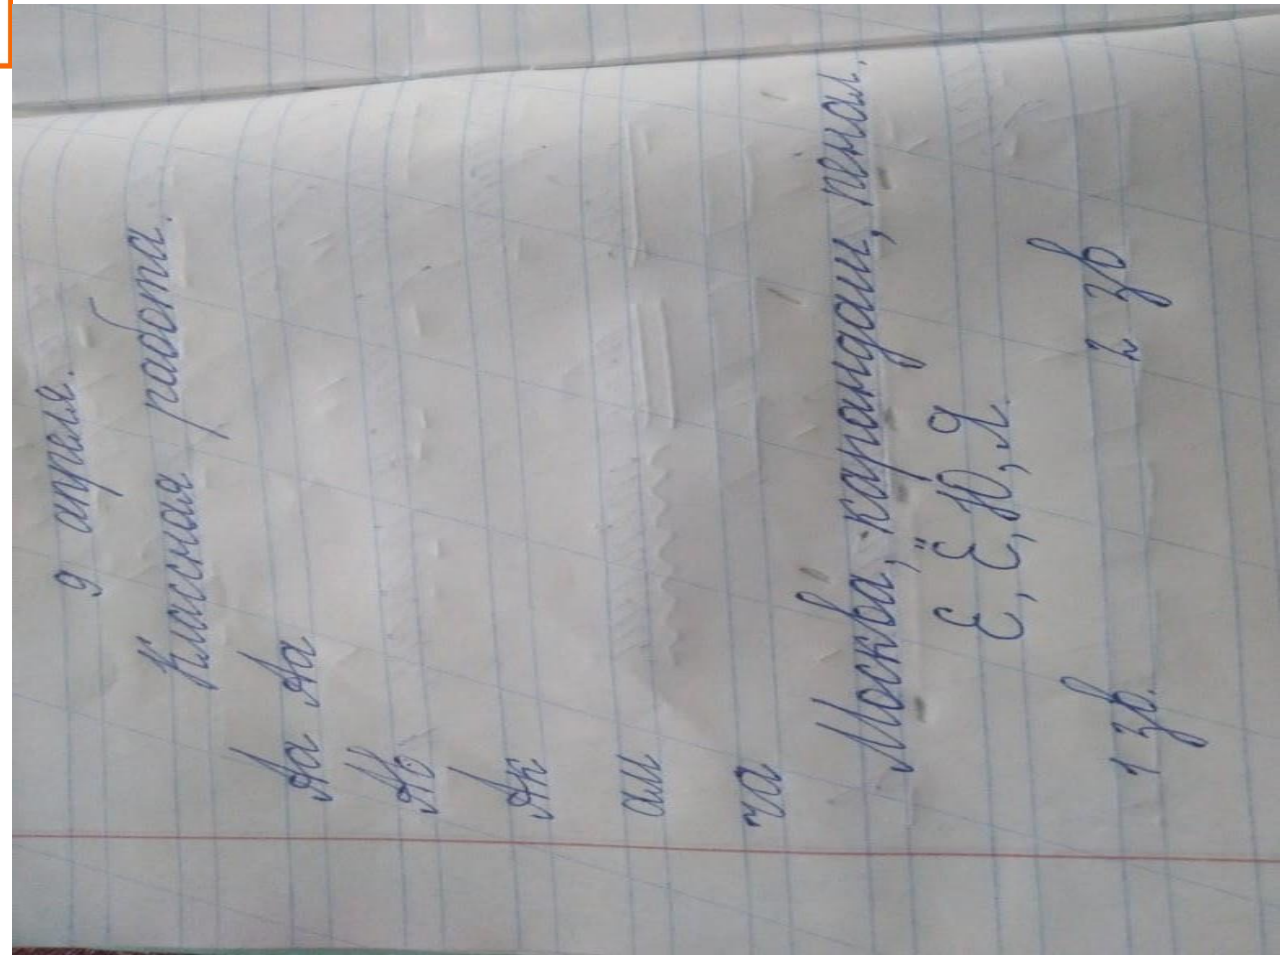 9 апреля.
Классная работа.
Аа Аа
Ак
аш
ча
Москва, карандаш, пенал.
Е, Ё, Ю, Я.
1 зв. 2 зв